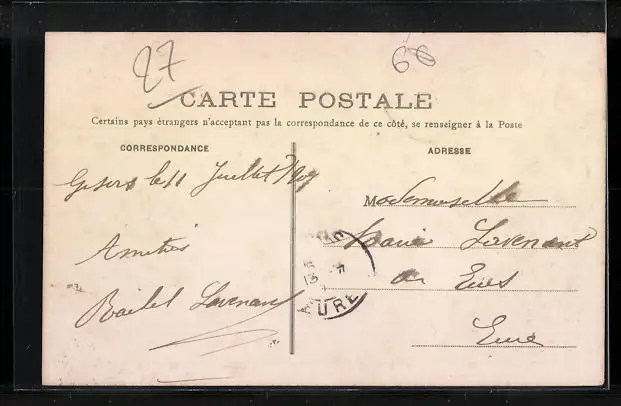 27
60
CARTE POSTALE
Certains pays étrangers n'acceptant pas la correspondance de ce côté, se renseigner à la Poste
CORRESPONDANCE
ADRESSE
Gisors le 11 Juillet 1907
Mademoiselle
Amitiés
Marie Lavenant
EURE
Eure